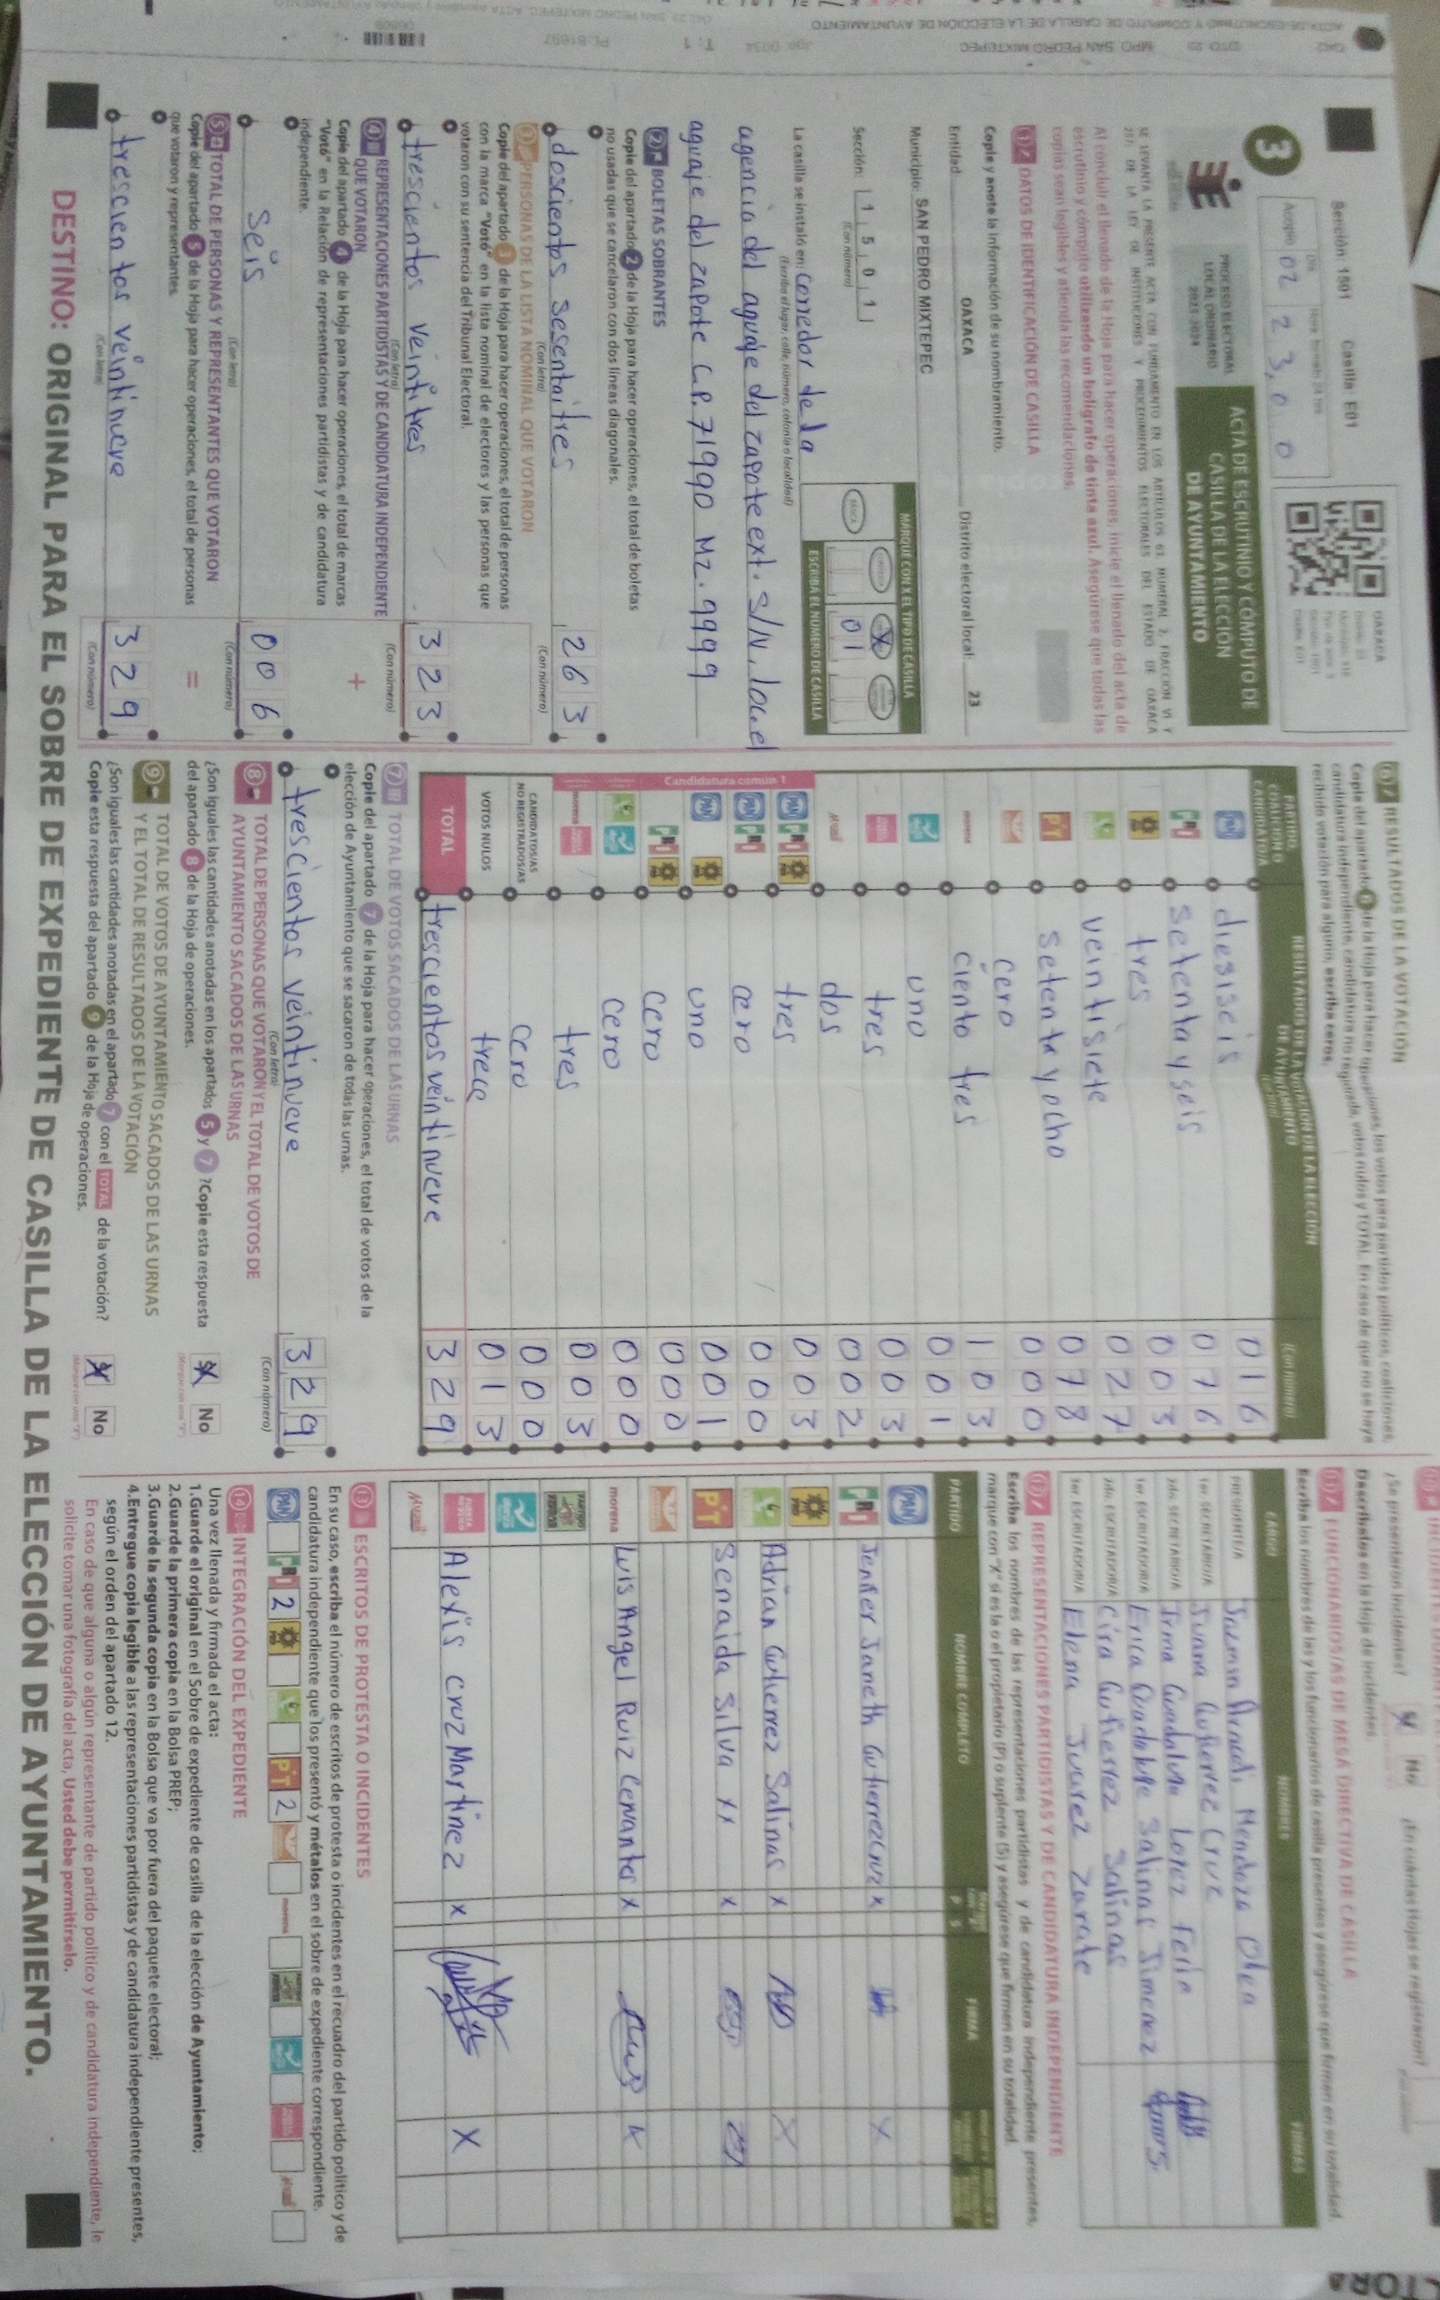 Sección: 1501 Casilla: E01
OAXACA
Acopio 02 23,00
3
PROCESO ELECTORAL
LOCAL ORDINARIO
2023-2024
ACTA DE ESCRUTINIO Y CÓMPUTO DE
CASILLA DE LA ELECCIÓN
DE AYUNTAMIENTO
SE LEVANTA LA PRESENTE ACTA CON FUNDAMENTO EN LOS ARTÍCULOS
Al concluir el llenado de la Hoja para hacer operaciones, inicie el llenado del acta de
escrutinio y cómputo utilizando un bolígrafo de tinta azul. Asegúrese que todas las
copias sean legibles y atienda las recomendaciones.
1 DATOS DE IDENTIFICACIÓN DE CASILLA
Copie y anote la información de su nombramiento.
Entidad: OAXACA Distrito electoral local: 23
Municipio: SAN PEDRO MIXTEPEC
Sección: 1 5 0 1
(Con número)
MARQUE CON X EL TIPO DE CASILLA
X
01
ESCRIBA EL NÚMERO DE CASILLA
La casilla se instaló en: Corredor de la
(Escriba el lugar, calle, número, colonia o localidad)
agencia del aguaje del zapote ext. S/N, local
aguaje del zapote C.P. 71990 Mz. 9999
2 BOLETAS SOBRANTES
Copie del apartado 2 de la Hoja para hacer operaciones, el total de boletas
no usadas que se cancelaron con dos líneas diagonales.
doscientos sesentaitres 263
(Con letra) (Con número)
3 PERSONAS DE LA LISTA NOMINAL QUE VOTARON
Copie del apartado 3 de la Hoja para hacer operaciones, el total de personas
con la marca "Votó" en la lista nominal de electores y las personas que
votaron con su sentencia del Tribunal Electoral.
trescientos veintitres 323
(Con letra) (Con número)
4 REPRESENTACIONES PARTIDISTAS Y DE CANDIDATURA INDEPENDIENTE
QUE VOTARON
+
Copie del apartado 4 de la Hoja para hacer operaciones, el total de marcas
"Votó" en la Relación de representaciones partidistas y de candidatura
independiente.
seis 006
(Con letra) (Con número)
5 TOTAL DE PERSONAS Y REPRESENTANTES QUE VOTARON
=
Copie del apartado 5 de la Hoja para hacer operaciones, el total de personas
que votaron y representantes.
trescientos veintinueve 329
(Con letra) (Con número)
6 RESULTADOS DE LA VOTACIÓN
Copie del apartado 6 de la Hoja para hacer operaciones, los votos para partidos políticos, coaliciones,
candidatura independiente, candidatura no registrada, votos nulos y TOTAL. En caso de que no se haya
recibido votación para alguno, escriba ceros.
PARTIDO, COALICIÓN O CANDIDATO/A
RESULTADOS DE LA VOTACIÓN DE LA ELECCIÓN DE AYUNTAMIENTO
(Con número)
PAN diesiseis 016
PRI setenta y seis 076
PRD tres 003
veintisiete 027
PT setenta y ocho 078
cero 000
morena ciento tres 103
uno 001
tres 003
dos 002
Candidatura común 1
PAN PRI PRD tres 003
PAN PRI cero 000
PAN PRD uno 001
PRI PRD cero 000
cero 000
morena tres 003
CANDIDATOS/AS NO REGISTRADOS/AS cero 000
VOTOS NULOS trece 013
TOTAL trescientos veintinueve 329
7 TOTAL DE VOTOS SACADOS DE LAS URNAS
Copie del apartado 7 de la Hoja para hacer operaciones, el total de votos de la
elección de Ayuntamiento que se sacaron de todas las urnas.
trescientos veintinueve 329
(Con letra) (Con número)
8 TOTAL DE PERSONAS QUE VOTARON Y EL TOTAL DE VOTOS DE
AYUNTAMIENTO SACADOS DE LAS URNAS
¿Son iguales las cantidades anotadas en los apartados 5 y 7 ? Copie esta respuesta
del apartado 8 de la Hoja de operaciones.
Sí No
9 TOTAL DE VOTOS DE AYUNTAMIENTO SACADOS DE LAS URNAS
Y EL TOTAL DE RESULTADOS DE LA VOTACIÓN
¿Son iguales las cantidades anotadas en el apartado 7 con el TOTAL de la votación?
Copie esta respuesta del apartado 9 de la Hoja de operaciones.
Sí No
¿Se presentaron incidentes? Sí No ¿En cuántas Hojas se registraron?
Descríbalos en la Hoja de incidentes.
11 FUNCIONARIOS/AS DE MESA DIRECTIVA DE CASILLA
Escriba los nombres de las y los funcionarios de casilla presentes y asegúrese que firmen en su totalidad.
CARGO NOMBRES FIRMAS
PRESIDENTE/A Mendoza Olea
1er. SECRETARIO/A Juana Gutierrez Cruz
2do. SECRETARIO/A Irma Guadalupe Lopez
1er. ESCRUTADOR/A Erica Salinas Jimenez
2do. ESCRUTADOR/A Cira Gutierrez Salinas
3er. ESCRUTADOR/A Elena Juarez Zarate
12 REPRESENTACIONES PARTIDISTAS Y DE CANDIDATURA INDEPENDIENTE
Escriba los nombres de las representaciones partidistas y de candidatura independiente presentes,
marque con "X" si es la o el propietario (P) o suplente (S) y asegúrese que firmen en su totalidad.
PARTIDO NOMBRE COMPLETO P S FIRMA
PAN
PRI Jenifer Janneth Gutierrez Cruz x X
PRD
Adrian Gutierrez Salinas x X
PT Senaida Silva x
morena Luis Angel Ruiz Cervantes x
Alexis Cruz Martinez x X
13 ESCRITOS DE PROTESTA O INCIDENTES
En su caso, escriba el número de escritos de protesta o incidentes en el recuadro del partido político y de
candidatura independiente que los presentó y métalos en el sobre de expediente correspondiente.
PAN PRI 2 PRD PT 2 morena
14 INTEGRACIÓN DEL EXPEDIENTE
Una vez llenada y firmada el acta:
1.Guarde el original en el Sobre de expediente de casilla de la elección de Ayuntamiento;
2.Guarde la primera copia en la Bolsa PREP;
3.Guarde la segunda copia en la Bolsa que va por fuera del paquete electoral;
4.Entregue copia legible a las representaciones partidistas y de candidatura independiente presentes,
según el orden del apartado 12.
En caso de que alguna o algún representante de partido político y de candidatura independiente, le
solicite tomar una fotografía del acta, Usted debe permitírselo.
DESTINO: ORIGINAL PARA EL SOBRE DE EXPEDIENTE DE CASILLA DE LA ELECCIÓN DE AYUNTAMIENTO.